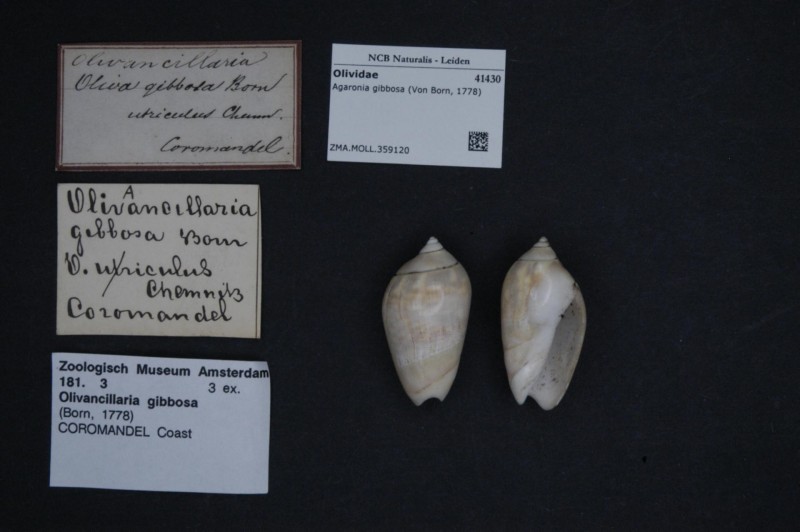 Olivancillaria
Oliva gibbosa Born
utriculus Chemn.
Coromandel.
NCB Naturalis - Leiden
Olividae 41430
Agaronia gibbosa (Von Born, 1778)
ZMA.MOLL.359120
OlivAncillaria
gibbosa Born
V. utriculus
Chemnitz
Coromandel
Zoologisch Museum Amsterdam
181. 3 3 ex.
Olivancillaria gibbosa
(Born, 1778)
COROMANDEL Coast